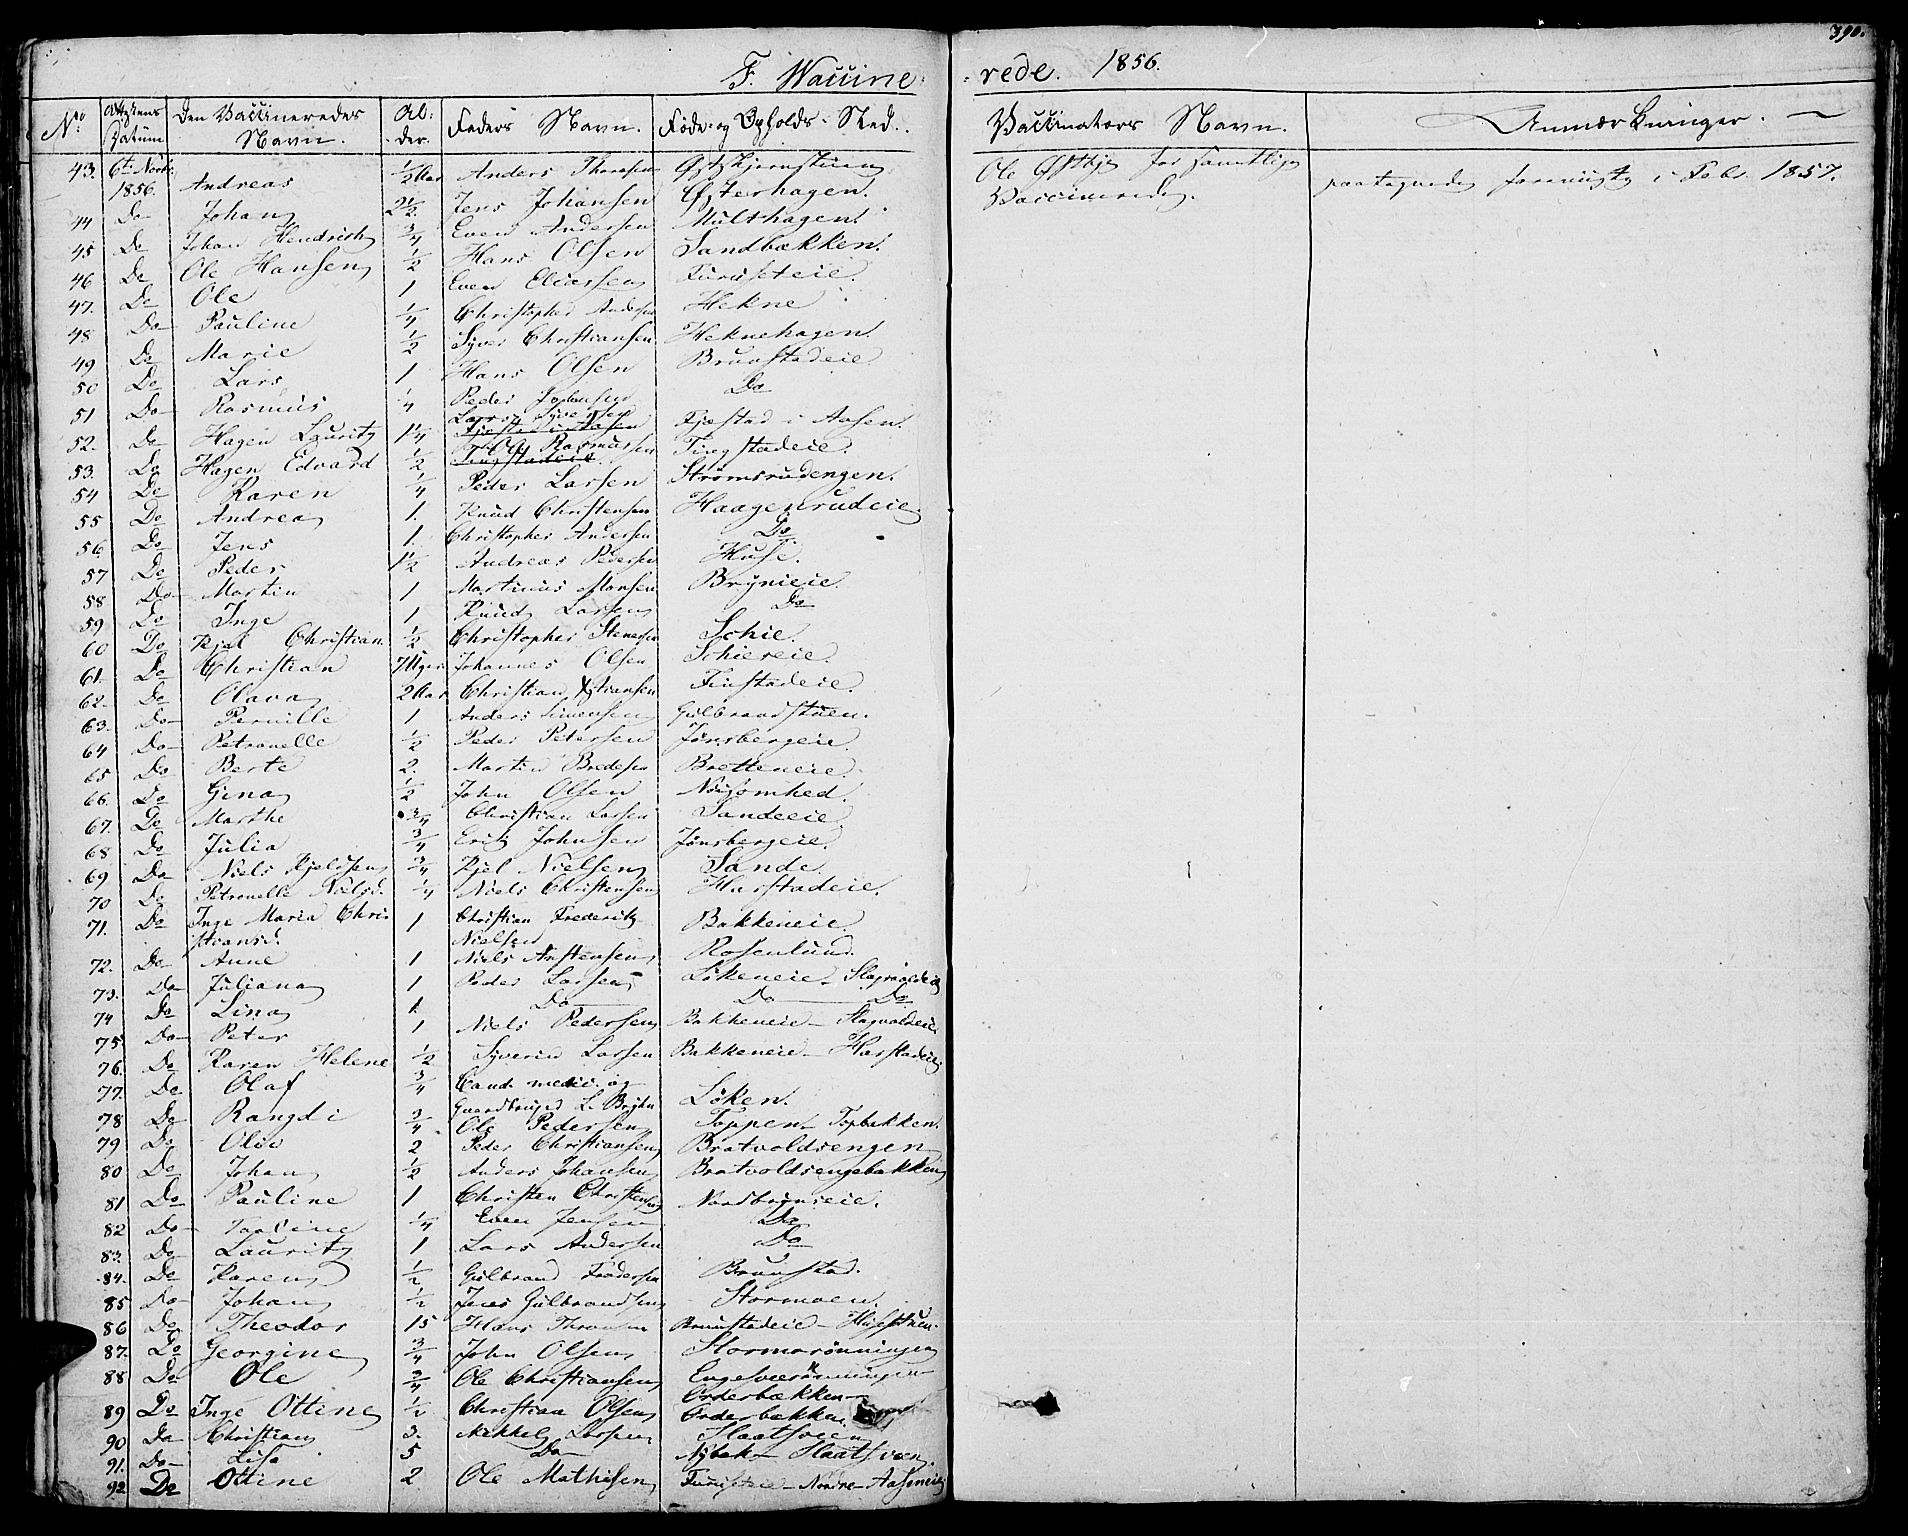 390.
F. Waccine-
-rede. 1856.
No Attestens Datum Den Vaccineredes Navn. Al-der. Faders Navn. Føde- og Opholds-Sted. Vaccinators Navn. Anmærkninger.
43. 6te Novbr 1856. Andreas 1/2 Aar Anders Ole Østbye for samtlige Vaccinerede. i Febr. 1857.
44 Do Johan 2 1/2 Jens Johansen Østerhagen.
45 Do Johan Hendrich 3/4 Even Andersen Multhagen.
46 Do Ole Hansen 1/2 Hans Olsen Sandbækken.
47. Do Ole 1 Even Eliassen Furuseteie.
48 Do Pauline 1/4 Christopher Andersen Hekne
49 Do Marie 1/2 Syver Christiansen Heknehagen.
50 Do Lars 1 Hans Olsen Brunstadeie
51 Do Rasmus 1/4 Peder Johansen Do
52. Do Hagen Lauritz 1 1/4 Lars Syversen Fjæstad i Aasen.
53. Do Hagen Edvard 1/2 Ole Rasmussen Tingstadeie.
54 Do Karen 1/4 Peder Larsen Strømsrudengen.
55 Do Andrea 1. Knud Christensen Haagenrudeie
56 Do Jens 1. Christopher Andersen Do
57 Do Peder 1 1/2 Andreas Pedersen Huse
58 Do Martin 1 Martinus Hansen Brynieie.
59 Do Inge 1 Knud Larsen Do
60 Do Kjel Christian 1/2 Christopher Stenersen Schie.
61. Do Christian 7 Uger Johannes Olsen Schieeie.
62. Do Olava 2 Aar Christian Xstiansen Finstadeie.
63. Do Pernille 1 Anders Simensen Gulbrandstuen.
64 Do Petronelle 1/2 Peder Petersen Jønsbergeie.
65 Do Berte 2. Martin Bredesen Bretteneie.
66. Do Gina 1/2 John Olsen Nøisomhed.
67. Do Marthe 3/4 Christian Larsen Sandeeie
68 Do Julia 3/4 Erik Johnsen Jønsbergeie.
69 Do Niels Kjeldsen 3/4 Kjel Nielsen Sande.
70 Do Petronelle Nielsd. 1/4 Niels Christensen Harstadeie.
71. Do Inge Maria Chris-stiansd. 1 Christian Frederik Nielsen Bakkeneie.
72. Do Anne 1 Niels Rosenlund.
73. Do Juliana 1 Peder Larsen Løkeneie - Slagvoldeie
74 Do Lina 1 Do Do Do
75. Do Peter 1 Niels Pedersen Bakkeneie - Slagvoldeie
76. Do Karen Helene 1/2 Syverin Larsen Bakkeneie - Harstadeie
77. Do Olaf 3/4 Cand. medic. og Løken.
78 Do Rangdi 3/4 Ole Pedersen Toppen - Topbakken.
79 Do Olea 2 Peder Christiansen Bratvoldsengen
80 Do Johan 1/2 Anders Johansen Bratvoldsengebakken
81 Do Pauline 1 Christen Christensen Nordbrynieie.
82 Do Pauline 1/4 Even Jensen Do
83. Do Lauritz 1 Lars Andersen Do
84. Do Karen 1/2 Gulbrand Brunstad.
85 Do Johan 1/2 Jens Gulbrandsen Stormoen.
86 Do Theodor 15 Hans Thronsen Brunstadeie -
87. Do Georgine 3/4 John Olsen Stormorønningen
88 Do Ole 3/4 Ole Christiansen
89 Do Inge Ottine 1/2 Christian Olsen Orderbækken
Orderbækken
90 Do Christian 3. Mikkel Larsen Slaatsveen
91. Do Lisa 5 Do Nybak - Slaatsveen.
92 Do Ottine 2 Ole Mathisen Furuseteie - Nordre-Aasmeie